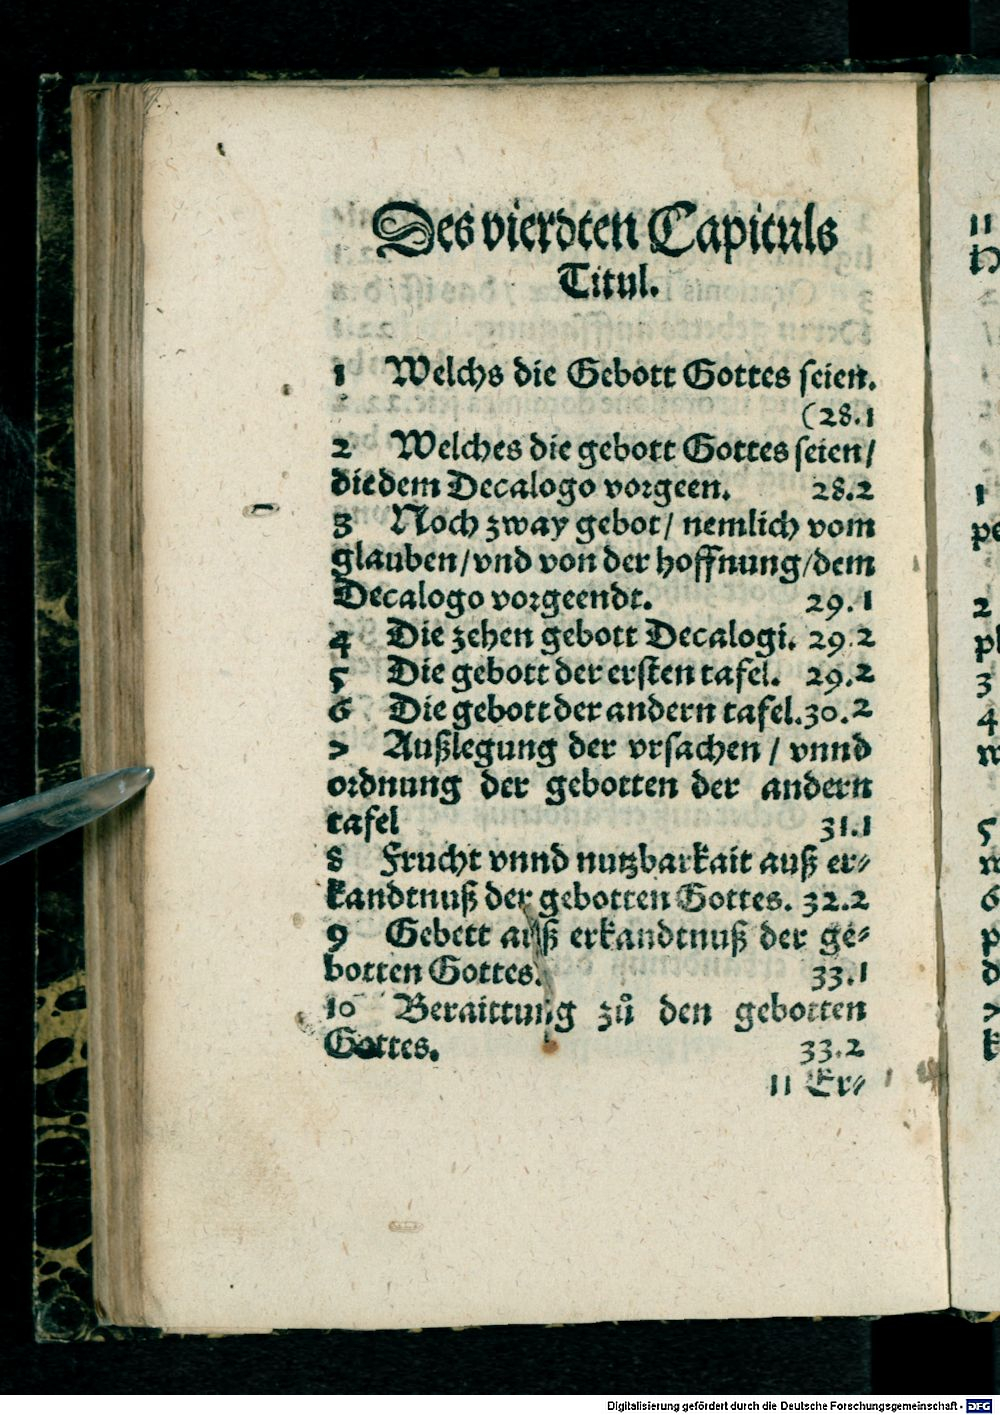 Des vierdten Capituls
Titul.
1 Welchs die Gebott Gottes seien.
(28.1
2 Welches die gebott Gottes seien/
die dem Decalogo vorgeen. 28.2
3 Noch zway gebot/ nemlich vom
glauben/vnd von der hoffnung/dem
Decalogo vorgeendt. 29.1
4 Die zehen gebott Decalogi. 29.2
5 Die gebott der ersten tafel. 29.2
6 Die gebott der andern tafel. 30.2
7 Außlegung der vrsachen / vnnd
ordnung der gebotten der andern
tafel 31.1
8 Frucht vnnd nutzbarkait auß er⸗
kandtnuß der gebotten Gottes. 32.2
9 Gebett auß erkandtnuß der ge⸗
botten Gottes. 33.1
10 Beraittung zů den gebotten
Gottes. 33.2
11 Er⸗
11
1
2
3
4
5
6
7
Digitalisierung gefördert durch die Deutsche Forschungsgemeinschaft - DFG